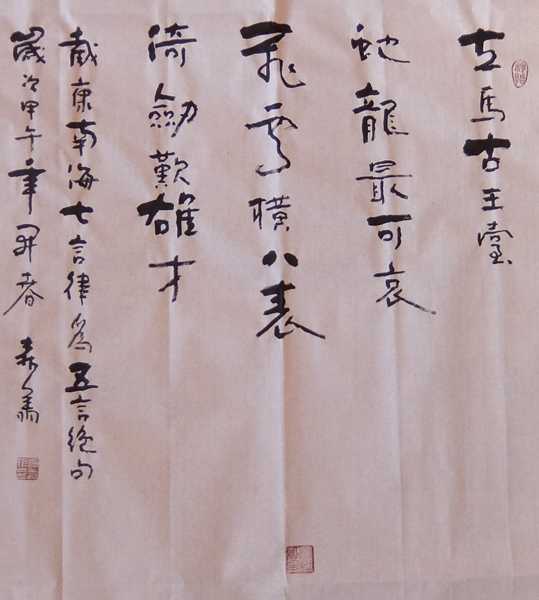 立馬古王臺
虵龍最可哀
飛雲橫八表
倚劒歎雄才
截康南海七言律為五言絕句
歲次甲午年开春 赤